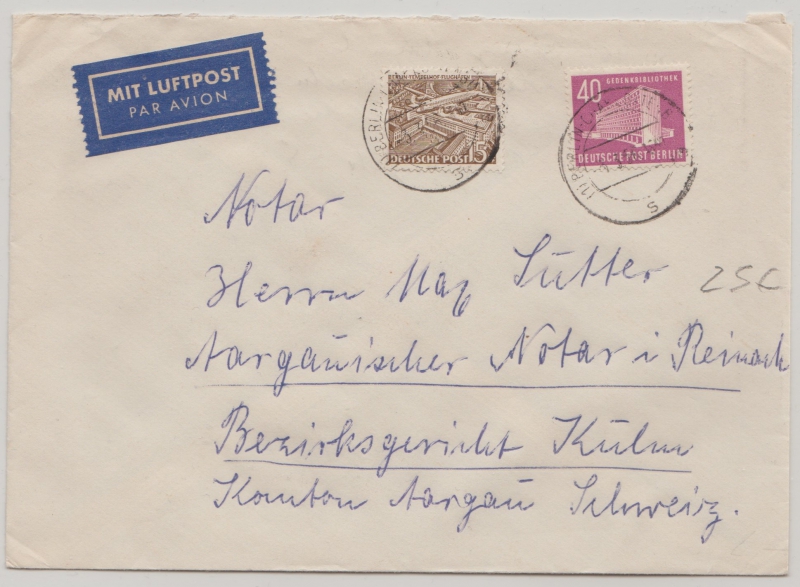 MIT LUFTPOST
PAR AVION
BERLIN
DEUTSCHE POST 15
GEDENKBIBLIOTHEK
40
DEUTSCHE POST BERLIN
Notar
Herrn Max Sutter
Aargauischer Notar i Reinach
Bezirksgericht Kulm
Kanton Aargau Schweiz.